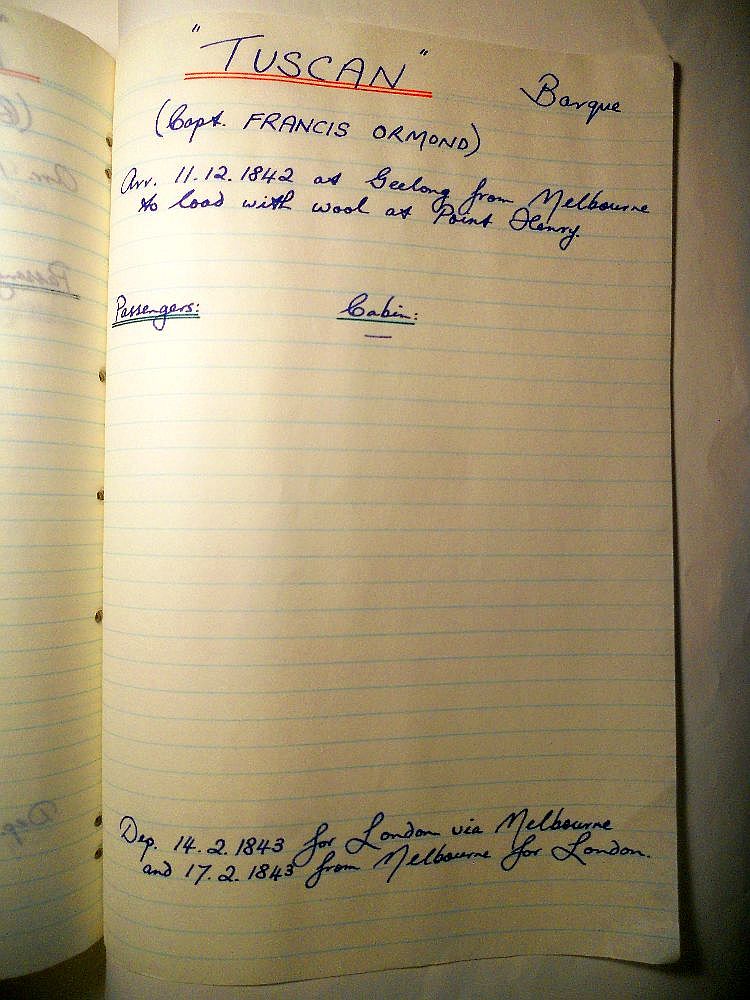 "TUSCAN" Barque
(Capt. FRANCIS ORMOND)
Arr. 11.12.1842 at Geelong from Melbourne
to load with wool at Point Henry.
Passengers: Cabin:
—
Dep. 14.2.1843 for London via Melbourne
and 17.2.1843 from Melbourne for London.